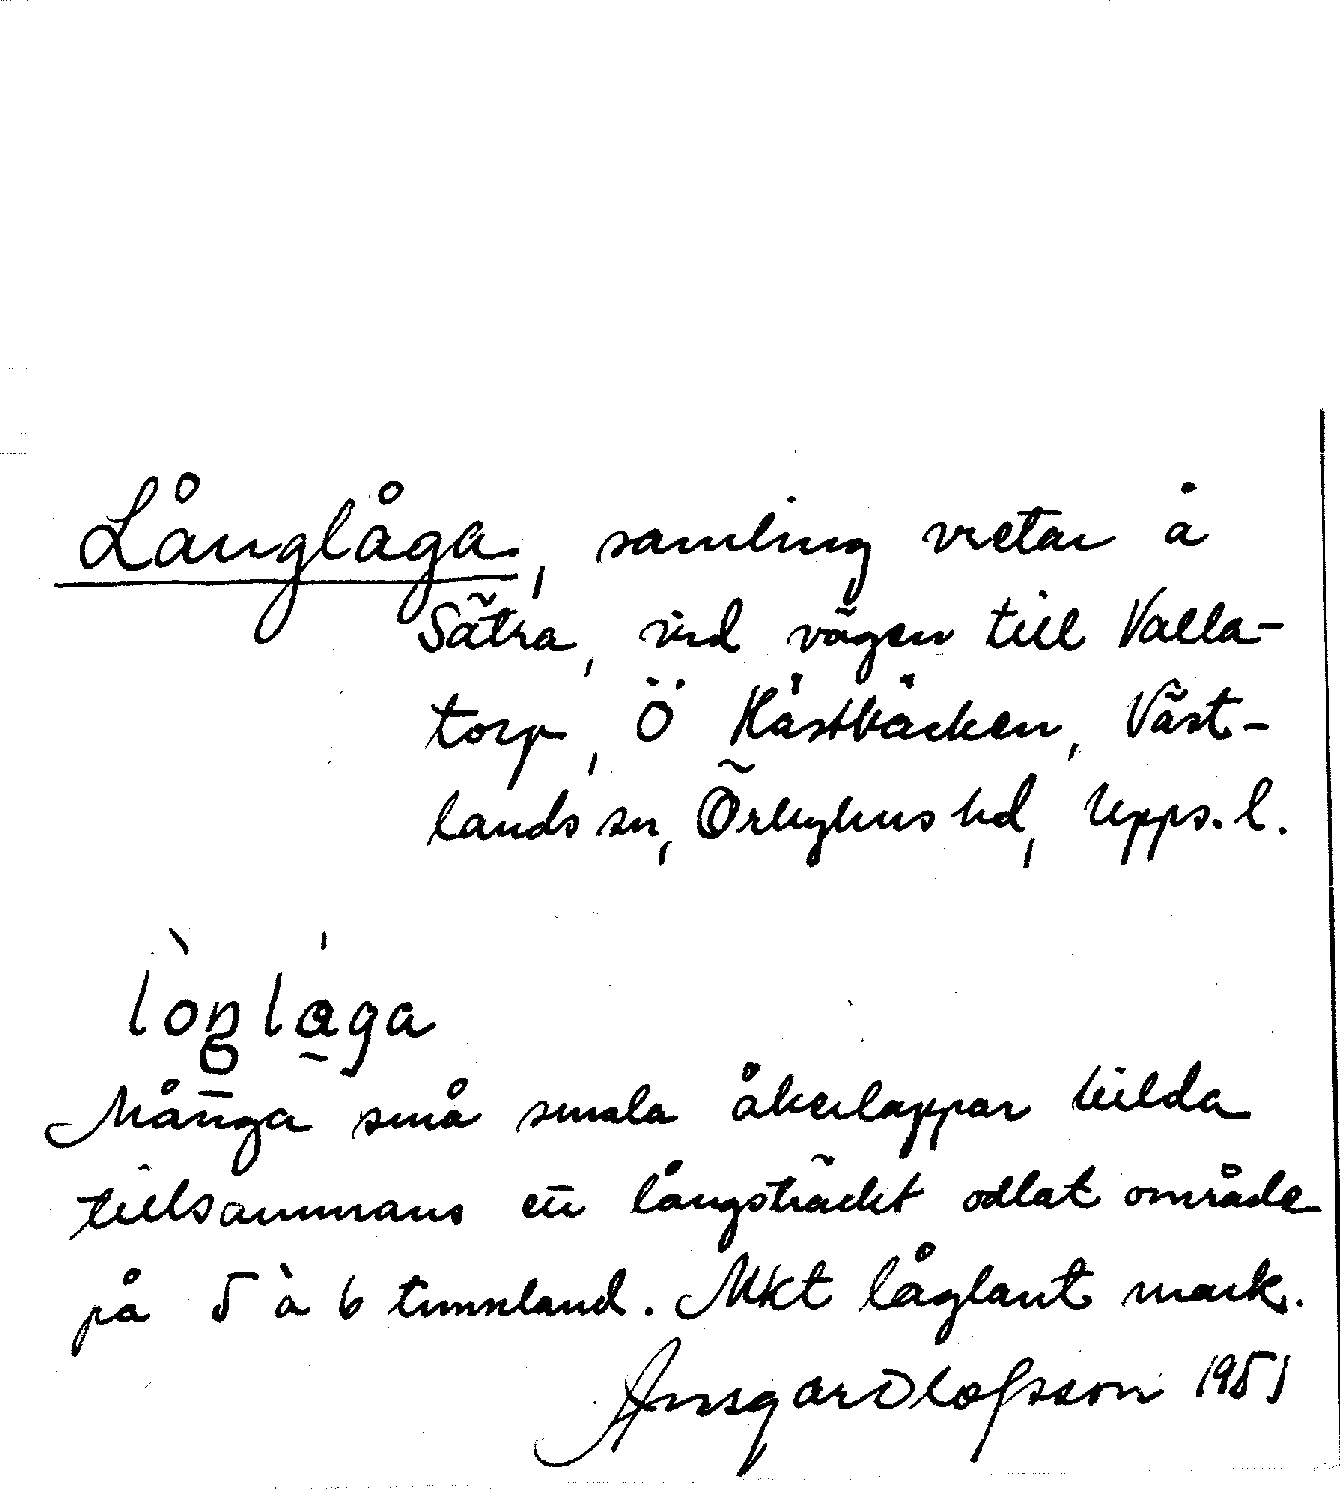 Långlåga, samling vretar å
Sätra, vid vägen till Valla-
torp, Ö Hästbäcken, Väst-
lands sn, Örbyhus hd, Upps. l.
Många små smala åkerlappar bilda
tillsammans ett långsträckt odlat område
på 5 à 6 tunnland. Mkt låglänt mark.
Ansgar Olofsson 1951